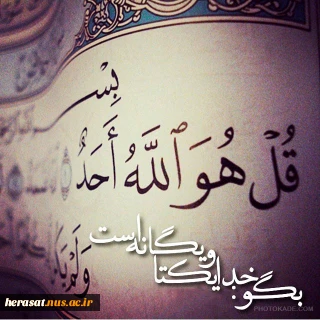 بِسْ
قُلْ هُوَ ٱللَّهُ أَحَدٌ
وَلَمْ يَ
بگو خدا یکتا و یگانه است
herasat.nus.ac.ir
PHOTOKADE.COM